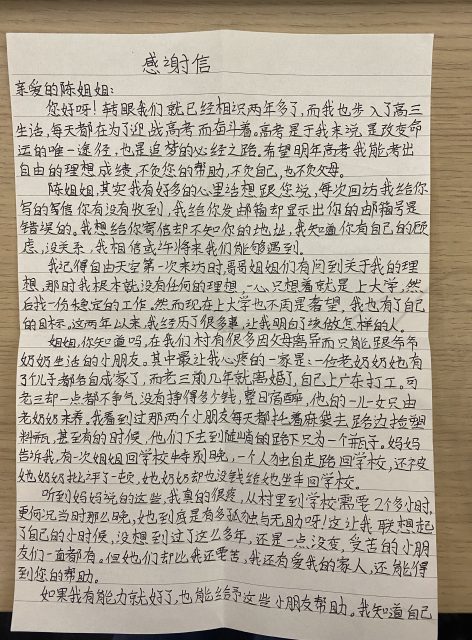 感谢信
亲爱的陈姐姐:
您好呀!转眼我们就已经相识两年多了,而我也步入了高三
生活,每天都在为了迎战高考而奋斗着。高考是于我来说,是改变命
运的唯一途径,也是追梦的必经之路。希望明年高考我能考出
自由的理想成绩,不负您的帮助,不负自己,也不负父母。
陈姐姐,其实我有好多的心里话想跟您说,每次回访我给你
写的写信你有没有收到,我给你发邮箱却显示出你的邮箱号是
错误的。我想给你寄信却不知你的地址,我知道你有自己的顾
虑,没关系,我相信或许将来我们能够遇到。
我记得自由天空第一次来访时,哥哥姐姐们有问到关于我的理
想,那时我根本就没有任何的理想,一心只想着就是上大学,然
后找一份稳定的工作。然而现在上大学也不再是奢望,我也有了自己
的目标,这两年以来,我经历了很多事,让我明白了该做怎样的人。
姐姐,你知道吗,在我们村有很多因父母离异而只能跟爷爷
奶奶生活的小朋友。其中最让我心疼的一家是:一位老奶奶她有
了几子都各自成家了,而老三前几年就离婚了,自己上广东打工。可
老三却一点都不争气,没有挣得多少钱,整日宿醉,他的一儿一女只由
老奶奶来养。我看到过那两个小朋友每天都扛着麻袋去路边捡塑
料瓶,甚至有的时候,他们下去到陡峭的路下只为一个瓶子。妈妈
告诉我,有一次姐姐回学校 特别晚,一个人独自走路回学校,还被
她奶奶批评了一顿,她奶奶却也没钱给她坐车回学校。
听到妈妈说的这些,我真的很疼,从村里到学校需要2个多小时,
更何况当时那么晚,她到底是有多孤独与无助呀!这让我联想起
了自己的小时候,没想到过了这么多年,还是一点没变,受苦的小朋
友们一直都有。但她们却比我还要苦,我还有爱我的家人,还能得
到您的帮助。
如果我有能力就好了,也能给予这些小朋友帮助。我知道自己